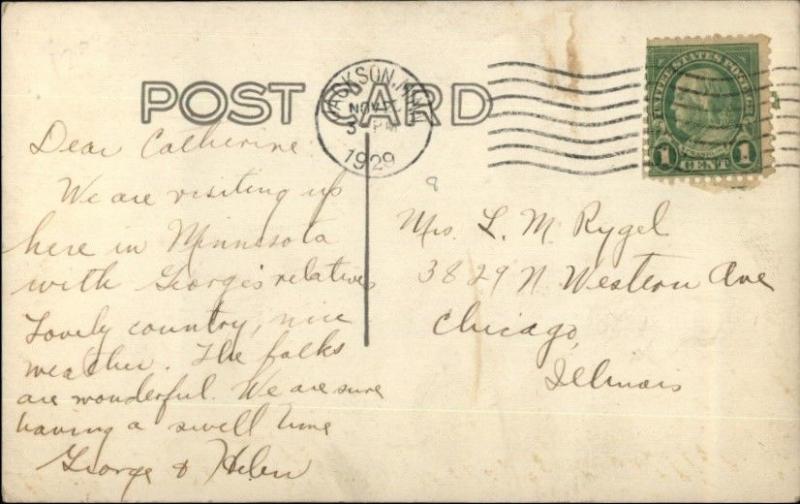 POST CARD
JACKSON, MINN.
NOV
3 PM
1929
UNITED STATES POSTAGE
1 CENT 1
Dear Catherine
We are visiting up
here in Minnesota
with George's relatives
Lovely country, nice
weather. The folks
are wonderful. We are sure
having a swell time
George & Helen
9
Mrs. L. M. Rygel
3829 N. Western Ave
Chicago,
Illinois